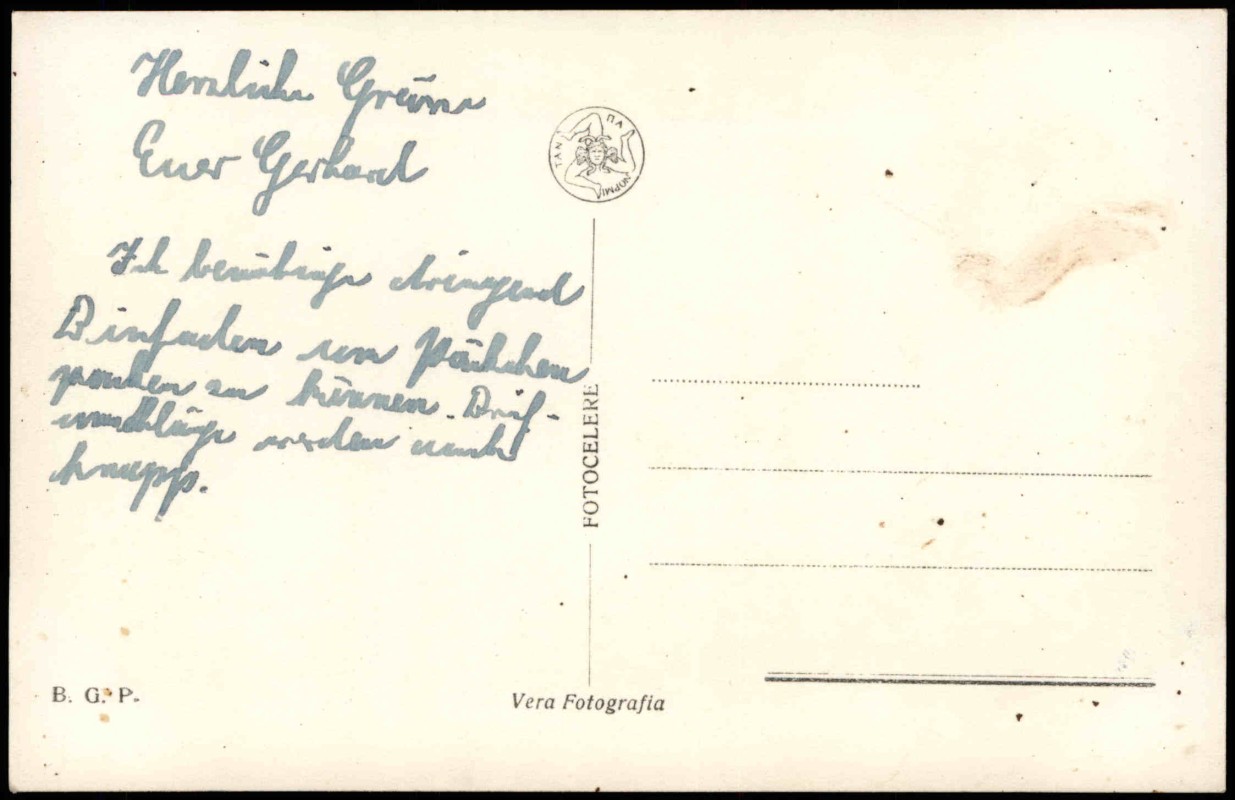 Herzliche Grüsse
Euer Gerhard
Ich benötige dringend
Binfaden um Päckchen
packen zu können. Brief-
umschläge werden auch
knapp.
ΠΑ
ΝΟΡΜΙ
ΤΑΝ
FOTOCELERE
B. G. P.
Vera Fotografia